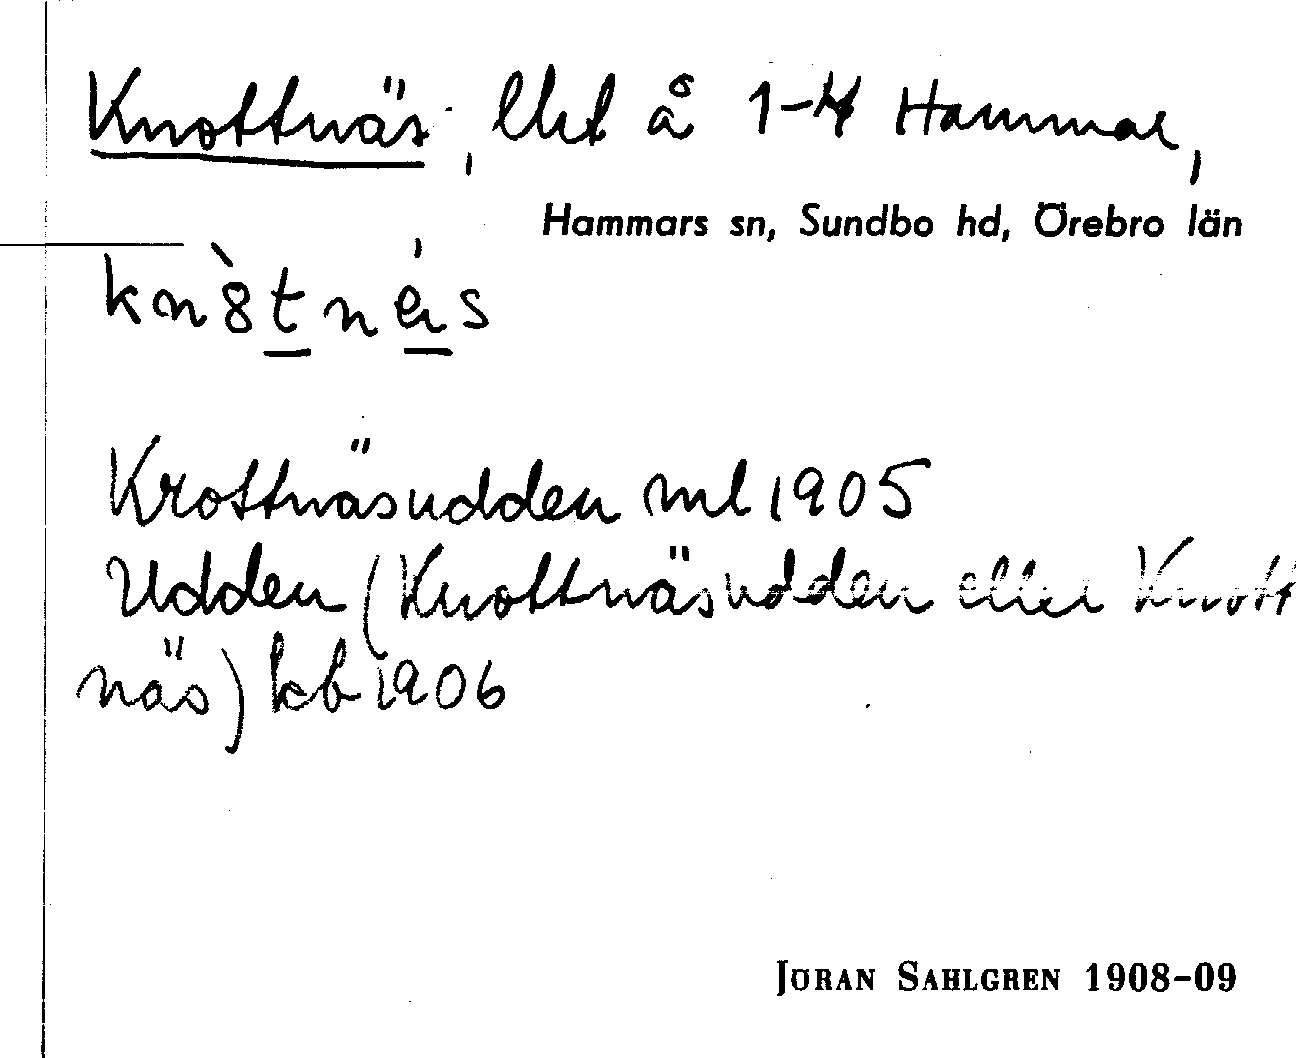 Knottnäs, lht å 1-4 Hammar,
Hammars sn, Sundbo hd, Örebro län
kn8̀tnä́s
Krottnäsudden ml 1905
Udden (Knottnäsudden eller Knott
näs) kb 1906
JÖRAN SAHLGREN 1908-09